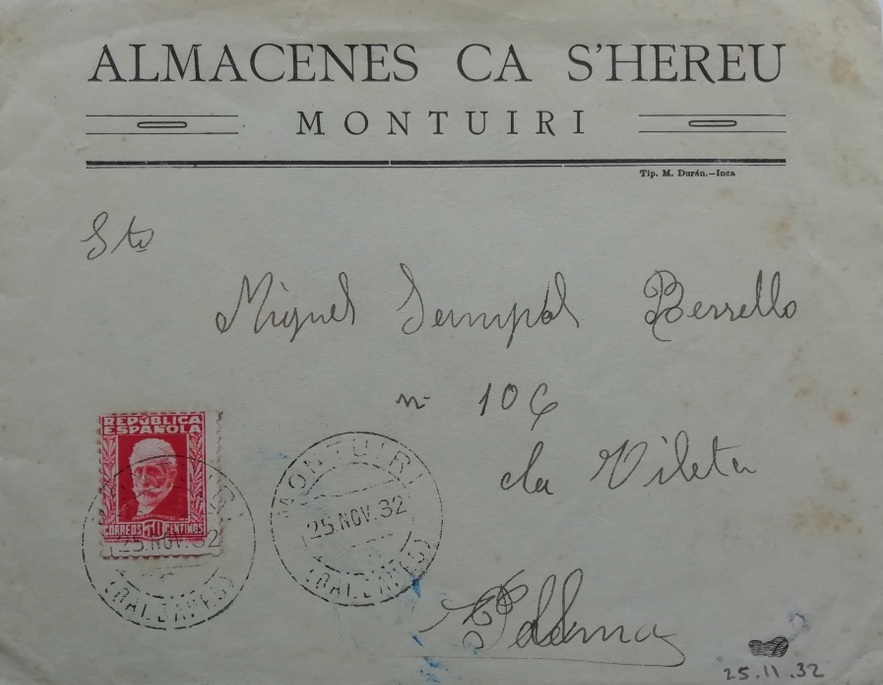 ALMACENES CA S'HEREU
MONTUIRI
Tip. M. Durán.-Inca
Miguel
nº 106
La Vileta
Palma
REPÚBLICA
ESPAÑOLA
CORREOS CENTIMOS
25.NOV.32
MONTUIRI
25.NOV.32
(BALEARES)
25.11.32